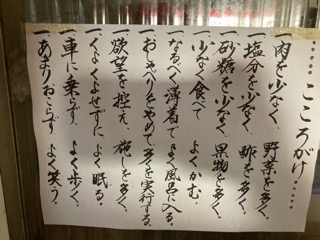 ……こころがけ……
一、肉を少なく、野菜を多く。
一、塩分を少なく、酢を多く。
一、砂糖を少なく、果物を多く。
一、少なく食べて よくかむ。
一、なるべく薄着で よく風呂に入る。
一、おしゃべりをやめて、多くを実行する。
一、欲望を控え、施しを多く。
一、くよくよせずに、よく眠る。
一、車に乗らず、よく歩く。
一、あまりおこらず よく笑う。